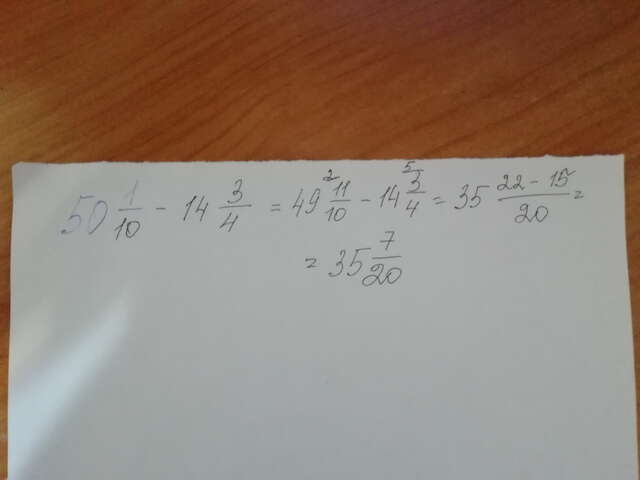 50 1/10 - 14 3/4 = 49 ²11/10 - 14 ⁵3/4 = 35 22 - 15/20 =
= 35 7/20